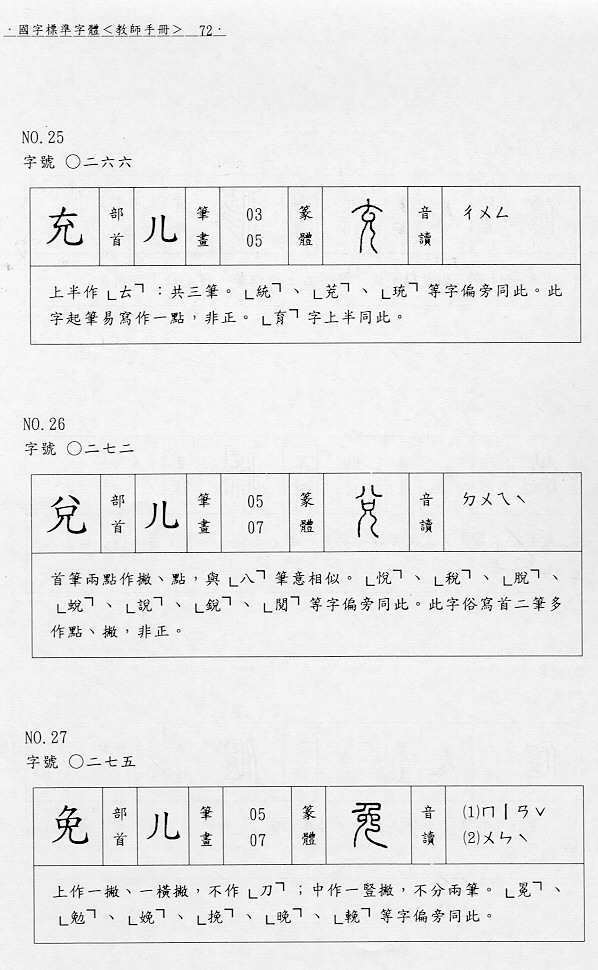 ·國字標準字體<教師手冊> 72·
NO.25
字號 ○二六六
充 部首 儿 筆畫 03 05 篆體 音讀 ㄔㄨㄥ
上半作「𠫓」:共三筆。「統」、「茺」、「珫」等字偏旁同此。此
字起筆易寫作一點,非正。「育」字上半同此。
NO.26
字號 ○二七二
兌 部首 儿 筆畫 05 07 篆體 音讀 ㄉㄨㄟˋ
首筆兩點作撇、點,與「八」筆意相似。「悅」、「稅」、「脫」、
「蛻」、「說」、「銳」、「閱」等字偏旁同此。此字俗寫首二筆多
作點、撇,非正。
NO.27
字號 ○二七五
免 部首 儿 筆畫 05 07 篆體 音讀 ⑴ㄇㄧㄢˇ ⑵ㄨㄣˋ
上作一撇、一橫撇,不作「刀」;中作一豎撇,不分兩筆。「冕」、
「勉」、「娩」、「挽」、「晚」、「輓」等字偏旁同此。